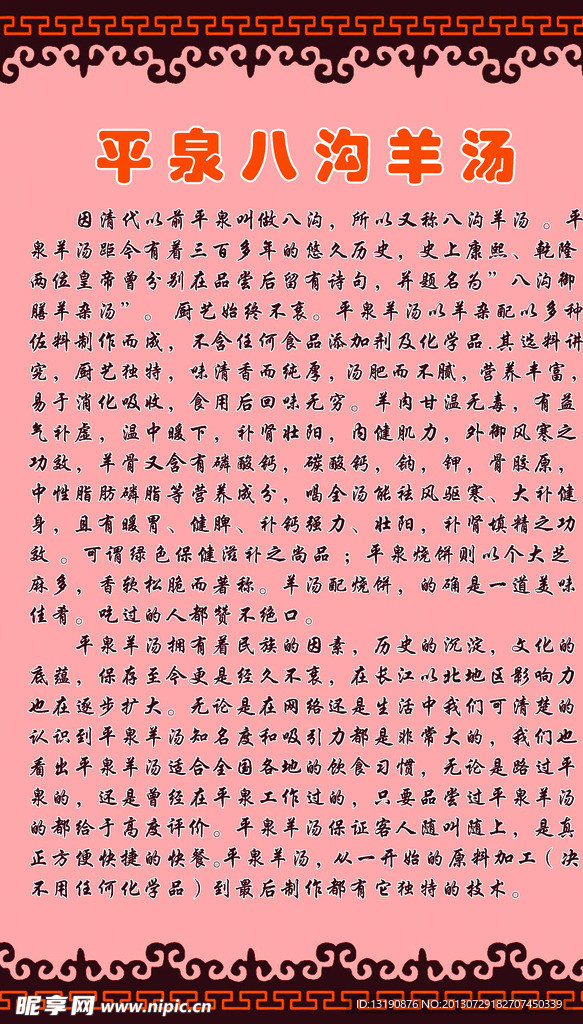 平泉八沟羊汤
因清代以前平泉叫做八沟，所以又称八沟羊汤 。平
泉羊汤距今有着三百多年的悠久历史，史上康熙、乾隆
两位皇帝曾分别在品尝后留有诗句，并题名为”八沟御
膳羊杂汤”。 厨艺始终不衰。平泉羊汤以羊杂配以多种
佐料制作而成，不含任何食品添加剂及化学品.其选料讲
究，厨艺独特，味清香而纯厚，汤肥而不腻，营养丰富，
易于消化吸收，食用后回味无穷。羊肉甘温无毒，有益
气补虚，温中暖下，补肾壮阳，内健肌力，外御风寒之
功效，羊骨又含有磷酸钙，碳酸钙，钠，钾，骨胶原，
中性脂肪磷脂等营养成分，喝全汤能祛风驱寒、大补健
身，且有暖胃、健脾、补钙强力、壮阳，补肾填精之功
效 。可谓绿色保健滋补之尚品 ；平泉烧饼则以个大芝
麻多，香软松脆而著称。羊汤配烧饼，的确是一道美味
佳肴。吃过的人都赞不绝口。
平泉羊汤拥有着民族的因素，历史的沉淀，文化的
底蕴，保存至今更是经久不衰，在长江以北地区影响力
也在逐步扩大。无论是在网络还是生活中我们可清楚的
认识到平泉羊汤知名度和吸引力都是非常大的，我们也
看出平泉羊汤适合全国各地的饮食习惯，无论是路过平
泉的，还是曾经在平泉工作过的，只要品尝过平泉羊汤
的都给于高度评价。平泉羊汤保证客人随叫随上，是真
正方便快捷的快餐。平泉羊汤，从一开始的原料加工（决
不用任何化学品）到最后制作都有它独特的技术。
昵享网 www.nipic.cn
ID:13190876 NO:20130729182707450339